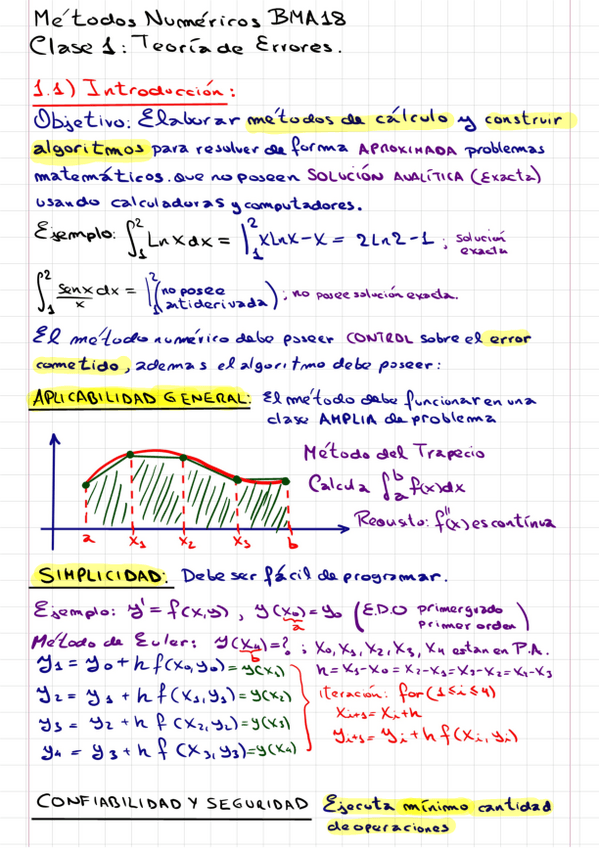 Métodos Numéricos BMA18
Clase 1: Teoría de Errores.
1.1) Introducción:
Objetivo: Elaborar métodos de cálculo y construir
algoritmos para resolver de forma APROXIMADA problemas
matemáticos. que no poseen SOLUCIÓN ANALÍTICA (Exacta)
usando calculadoras y computadores.
Ejemplo: ∫₁² Ln x dx = |₁² xLnx - x = 2Ln2 - 1 ; solución exacta
∫₁² senx/x dx = |₁² (no posee antiderivada) ; no posee solución exacta.
El método numérico debe poseer CONTROL sobre el error
cometido, ademas el algoritmo debe poseer:
APLICABILIDAD GENERAL: El método debe funcionar en una
clase AMPLIA de problema
Método del Trapecio
Calcula ∫ₐᵇ f(x)dx
Requsto: f''(x) es contínua
a x₁ x₂ x₃ b
SIMPLICIDAD: Debe ser fácil de programar.
Ejemplo: y' = f(x,y) , y(x₀) = y₀ (E.D.O primer grado
a primer orden)
Método de Euler: y(x₄) = ? ; x₀, x₁, x₂, x₃, x₄ estan en P.A.
b
y₁ = y₀ + h f(x₀, y₀) = y(x₁) h = x₁-x₀ = x₂-x₁ = x₃-x₂ = x₄-x₃
y₂ = y₁ + h f(x₁, y₁) = y(x₂) iteración: for(1≤i≤4)
y₃ = y₂ + h f(x₂, y₂) = y(x₃) xᵢ₊₁ = xᵢ + h
y₄ = y₃ + h f(x₃, y₃) = y(x₄) yᵢ₊₁ = yᵢ + h f(xᵢ, yᵢ)
CONFIABILIDAD Y SEGURIDAD Ejecuta mínimo cantidad
de operaciones